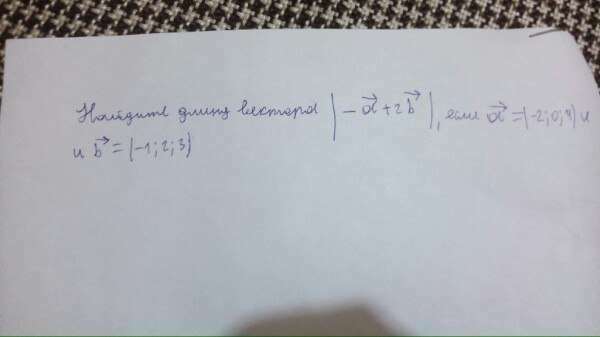 Найдите длину вектора |-a⃗+2b⃗|, если a⃗=(-2;0;4) и
и b⃗=(-1;2;3)